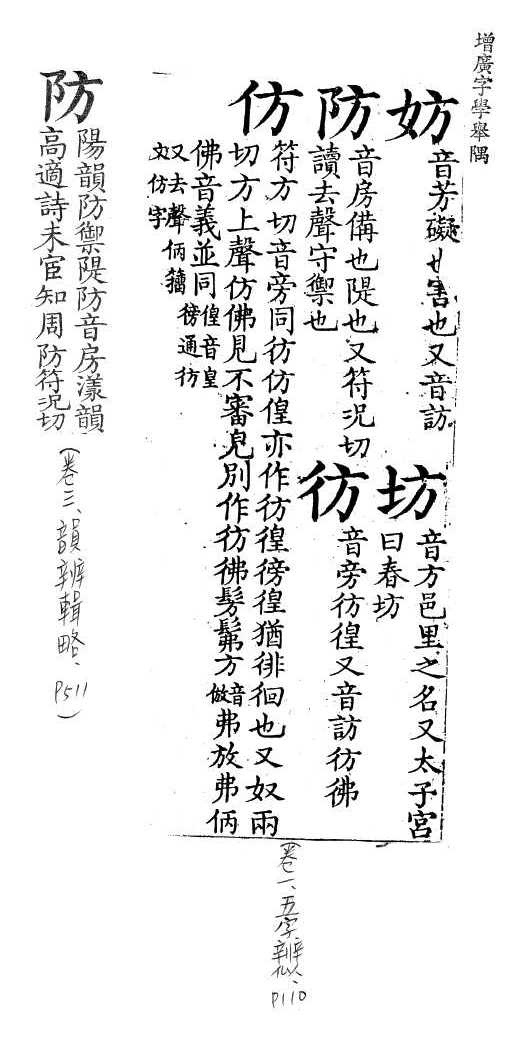 增廣字學舉隅
妨
音芳礙也害也又音訪
坊
音方邑里之名又太子宮
曰春坊
防
音房備也隄也又符况切
讀去聲守禦也
彷
音旁彷徨又音訪彷彿
仿
符方切音旁同彷仿偟亦作彷徨徬徨猶徘徊也又奴兩
切方上聲仿佛見不審皃別作彷彿髣髴方音倣弗放弗俩
佛音義並同偟音皇徬通彷
又去聲俩籀
文仿字
防
陽韻防禦隄防音房漾韻
高適詩未宦知周防符况切
(卷三、韻辨輯略、P511)
(卷一、五字辨似、P110